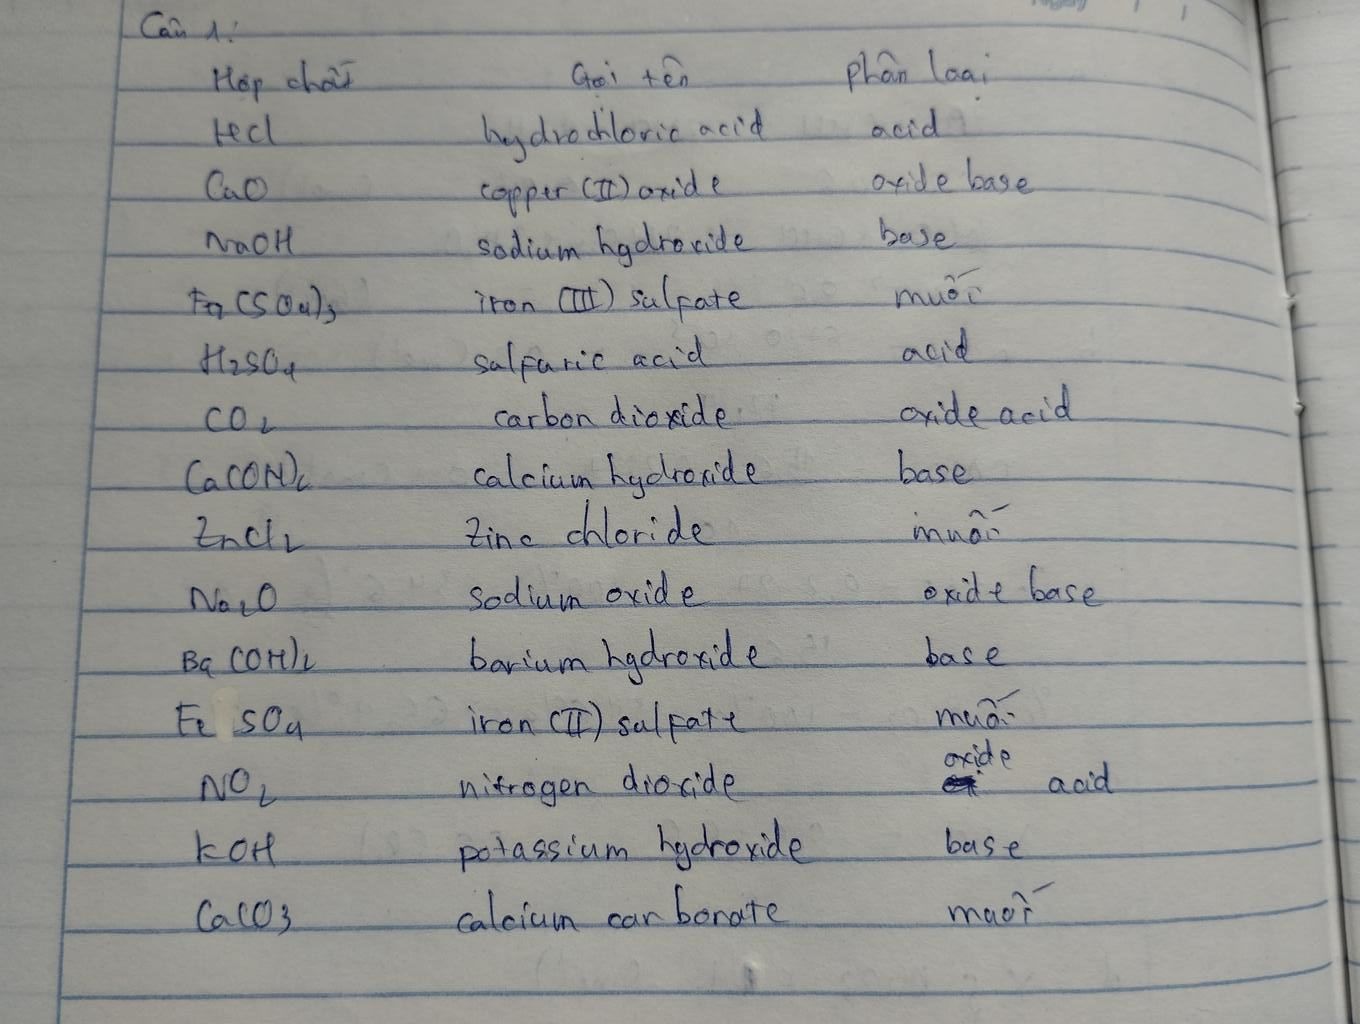 Câu 1:
Hợp chất Gọi tên phân loại
HCl hydrochloric acid acid
CuO copper (II) oxide oxide base
NaOH sodium hydroxide base
Fe2(SO4)3 iron (III) sulfate muối
H2SO4 sulfuric acid acid
CO2 carbon dioxide oxide acid
Ca(OH)2 calcium hydroxide base
ZnCl2 Zinc chloride muối
Na2O sodium oxide oxide base
Ba(OH)2 barium hydroxide base
FeSO4 iron (II) sulfate muối
NO2 nitrogen dioxide oxide acid
KOH potassium hydroxide base
CaCO3 calcium carbonate muối